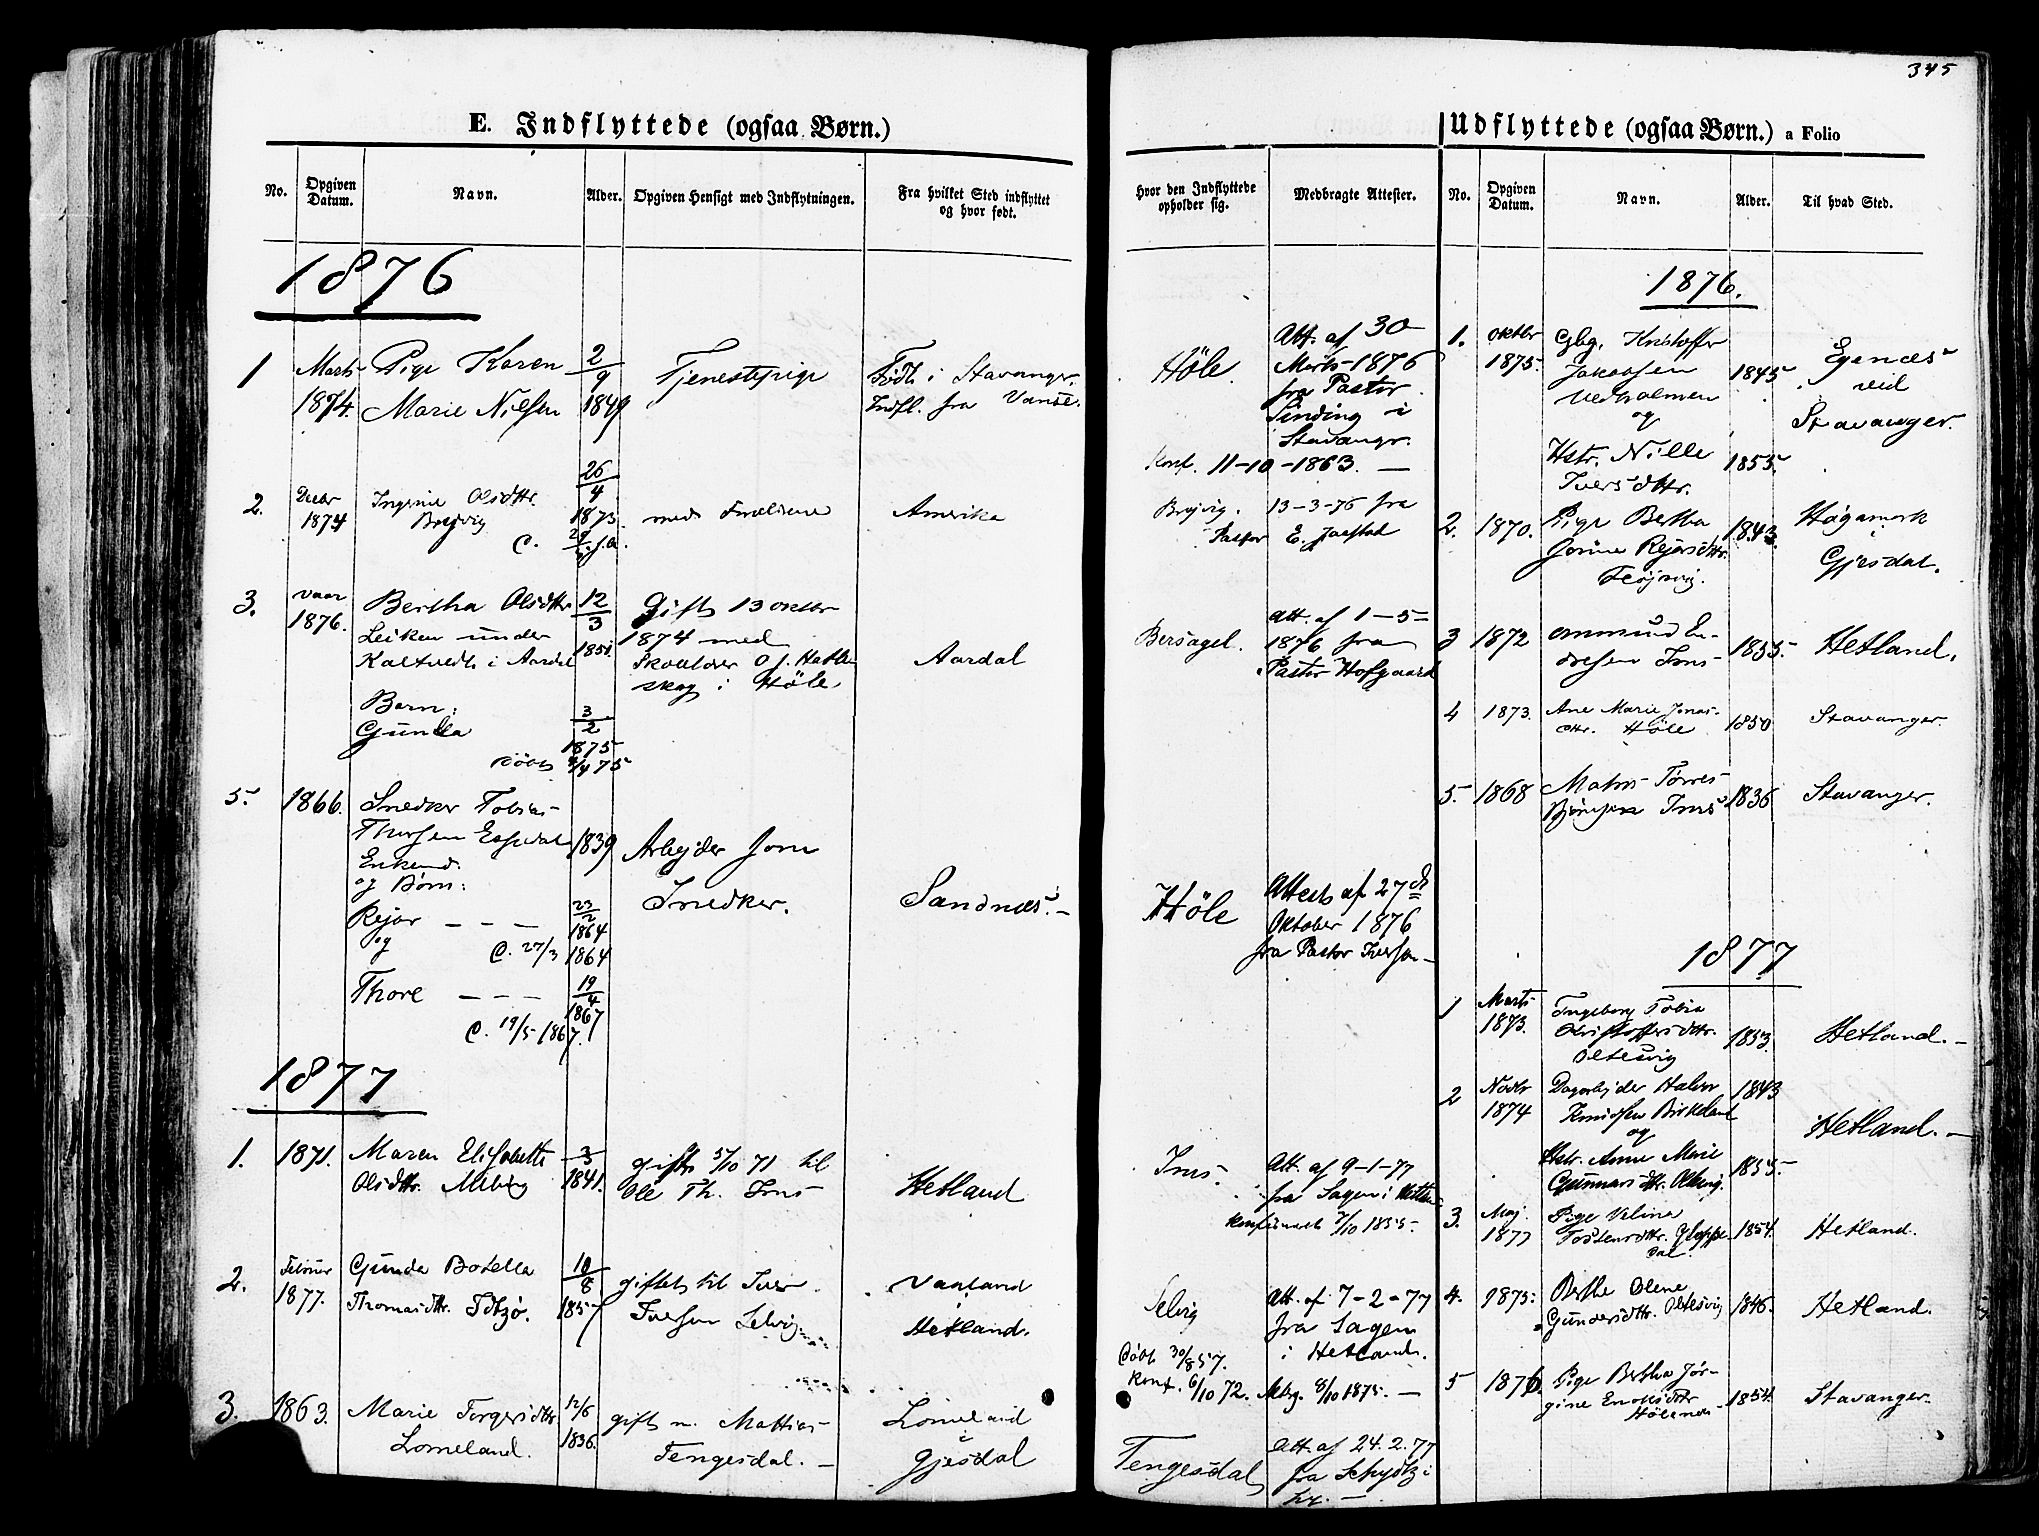 345
E. Indflyttede (ogsaa Børn.)
No.
Opgiven Datum.
Navn.
Alder.
Opgiven Hensigt med Indflytningen.
Fra hvilket Sted indflyttet
og hvor født.
1876
1 Marts Pige Karen 2/9 Tjenestepige Født i Stavanger.
1874. Marie Nilsen 1849 Indfl. fra Vanse.
26/4
2. Decbr Ingerine Olsdttr.
1874 Brejvig 1873. med Forældrene Amerika
3. Vaar Bertha Olsdttr 12/3 Gift 13 Oktbr
1876. Leiken under 1851. 1874 med
Kaltvedt i Aardal Aardal
skog i Höle
Børn:
Gunda 3/2
1875
døbt 4/4 75
5. 1866. Snedker Tobias
Thorsen Espedal 1839 Arbejder som
Enkemd.
og Børn: Snedker. Sandnæs.
Rejar — — — 23/2 1864
og C. 27/3 1864
Thore — — — 19/4 1867
C. 19/5 1867.
1877
1. 1871. Maren Elisabeth 3/
Olsdttr. 1841. gift 5/10 71 til
Ole Th. Ims Hetland
2. Februar Gunda Botella 10/8
1877. Thomasdttr. 1857 giftet til Iver Vatland
Iversen Selvig i
Hetland.
3. 1863. Marie Torgersdttr 12/6
Lomeland. 1836. gift m. Mathias Lomeland
Tengesdal. — i
Gjesdal
Hvor den Indflyttede
opholder sig.
Medbragte Attester.
Höle. Att. af 30
Marts 1876
fra Pastor
Sinding i
Stavanger.
Konf. 11-10-1863. —
Brejvig. 13-3-76 fra
Pastor E. Jaastad
Bersagel. Att. af 1-5
1876 fra
Pastor Hofgaard
Höle Attest af 27de
Oktober 1876
fra Pastor Iversen
Ims. Att. af 9-1-77
fra Sagen i Hetland
Konfirmeret 7/10 1855
Selvig Att. af 7-2-77
fra Sagen
i Hetland.
Døbt 30/8 57.
Konf. 6/10 72. 8/10 1875. —
Tengesdal Att. af 24.2.77
fra Schydtz i
Udflyttede (ogsaa Børn.) a Folio
No.
Opgiven Datum.
Navn.
Alder.
Til hvad Sted.
1876.
1. Oktbr Gbg. Kristoffer
1875. Jakobsen 1845 Egenæs
Vedholmen ved
og Stavanger.
Hstr. Nille 1853.
Iversdttr.
2. 1870. Pige Bertha 1843. Høgamork
Jorine Rejersdttr. i
Fløjsvig. Gjesdal.
3 1872 Ommund En-
dresen Ims 1855. Hetland.
4 1873. Ane Marie Jonas-
dttr. Höle 1850 Stavanger.
5. 1868 Mathis Tørres
Bjørnsen Ims 1836 Stavanger.
1877
1 Marts Ingeborg Tobia
1873. Christoffersdttr. 1853. Hetland. —
Oltesvig
2 Novbr Dagarbejder Halvor 1843
1874 Knudsen Birkeland
og Hetland. —
Hstr. Anne Marie 1855
Gunnarsdttr.
3. Maj Pige Velina
1877 Tostensdttr. Gloppe-
dal. 1854. Hetland.
4. 1875: Berthe Olene
Gundersdttr. Oltesvig 1846. Hetland.
5 1876. Pige Bertha Jør-
gine Enoksdttr 1854. Stavanger.
Høland